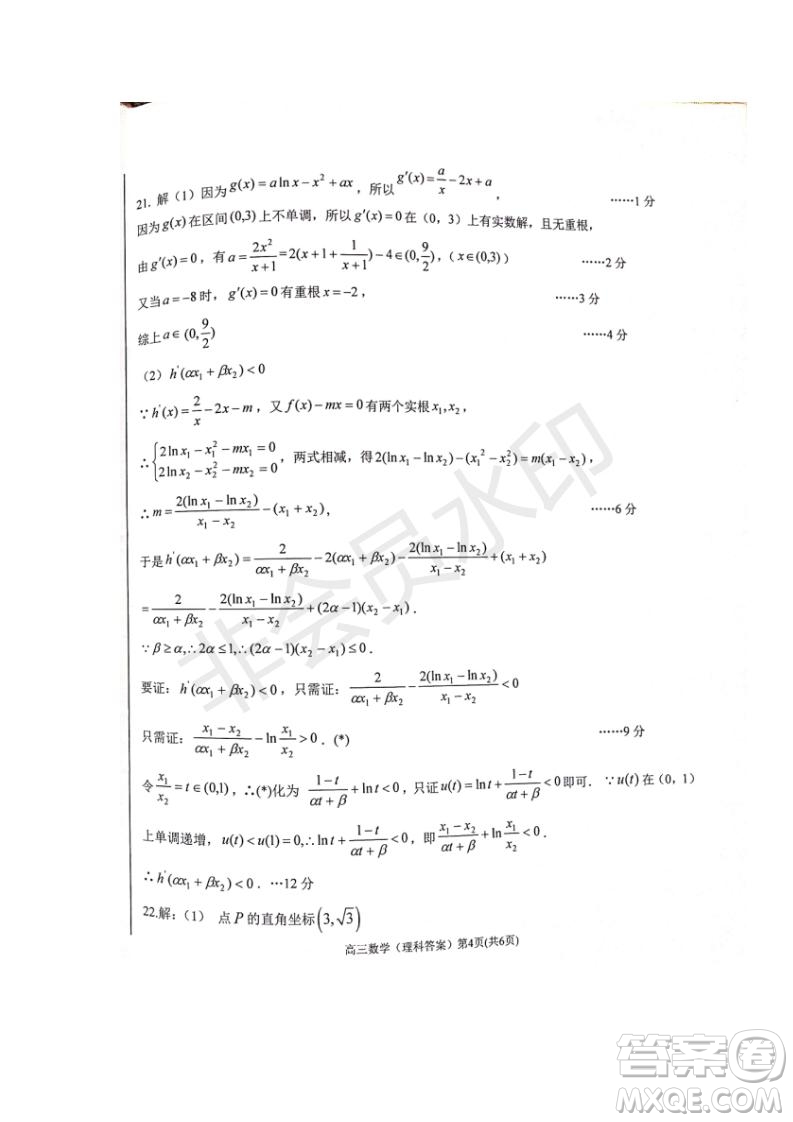 21. 解（1）因为g(x)=a ln x−x²+ax，所以g′(x)=a/x−2x+a， ……1分
因为g(x)在区间(0,3)上不单调，所以g′(x)=0在（0，3）上有实数解，且无重根，
由g′(x)=0，有a=2x²/(x+1)=2(x+1+1/(x+1))−4∈(0,9/2)，（x∈(0,3)） ……2分
又当a=−8时，g′(x)=0有重根x=−2， ……3分
综上a∈(0,9/2) ……4分
（2）h′(αx₁+βx₂)<0
∵h′(x)=2/x−2x−m，又f(x)−mx=0有两个实根x₁,x₂，
∴{2ln x₁−x₁²−mx₁=0
2ln x₂−x₂²−mx₂=0，两式相减，得2(ln x₁−ln x₂)−(x₁²−x₂²)=m(x₁−x₂)，
∴m=2(ln x₁−ln x₂)/(x₁−x₂)−(x₁+x₂), ……6分
于是h′(αx₁+βx₂)=2/(αx₁+βx₂)−2(αx₁+βx₂)−2(ln x₁−ln x₂)/(x₁−x₂)+(x₁+x₂)
=2/(αx₁+βx₂)−2(ln x₁−ln x₂)/(x₁−x₂)+(2α−1)(x₂−x₁)．
∵β≥α,∴2α≤1,∴(2α−1)(x₂−x₁)≤0．
要证：h′(αx₁+βx₂)<0，只需证：2/(αx₁+βx₂)−2(ln x₁−ln x₂)/(x₁−x₂)<0
只需证：(x₁−x₂)/(αx₁+βx₂)−ln x₁/x₂>0．(*) ……9分
令x₁/x₂=t∈(0,1)，∴(*)化为 (1−t)/(αt+β)+ln t<0，只证u(t)=ln t+(1−t)/(αt+β)<0即可．∵u(t)在（0，1）
上单调递增，u(t)<u(1)=0,∴ln t+(1−t)/(αt+β)<0，即(x₁−x₂)/(αx₁+βx₂)+ln x₁/x₂<0．
∴h′(αx₁+βx₂)<0．…12分
22.解：（1） 点P的直角坐标(3,√3)
高三数学（理科答案）第4页(共6页)
非会员水印
答案圈
MXQE.COM